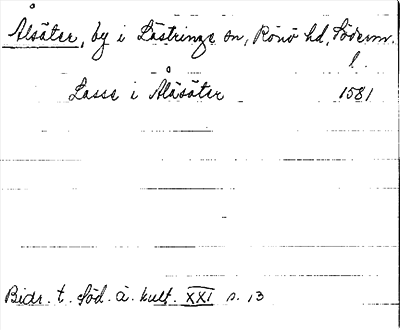 Ålsäter, by i Lästringe sn, Rönö hd, Söderm.
l.
Lasse i Ålåsäter 1581
Bidr. t. Söd. ä. kult. XXI s. 13